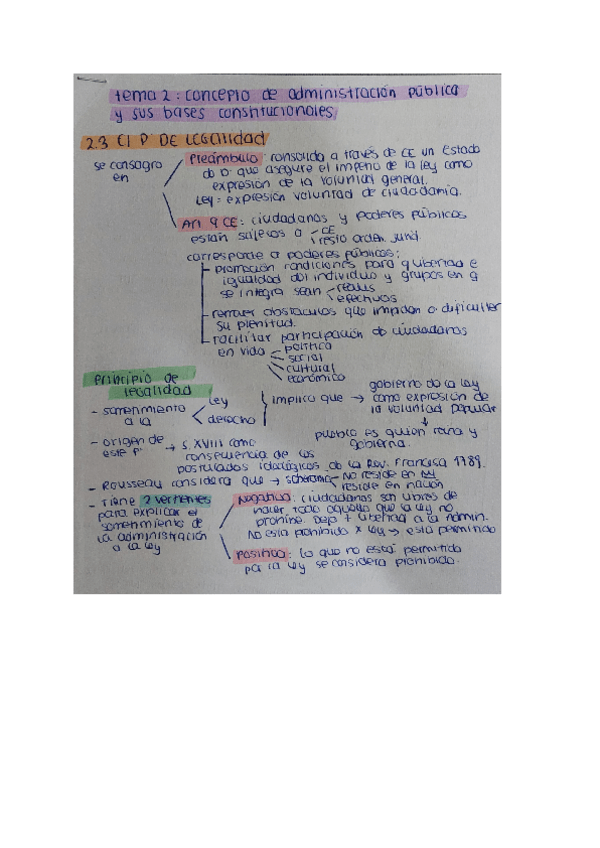 tema 2: concepto de administración pública
y sus bases constitucionales
2.3 El P' DE LEGALIDAD
se consagra
en
Preámbulo: consolida a través de CE un Estado
do D. que asegure el imperio de la ley como
expresión de la voluntad general.
Ley = expresión voluntad de ciudadanía.
Art 9 CE: ciudadanos y poderes públicos
están sujetos a
CE
resto orden. jurid.
corresponde a poderes públicos:
promoción condiciones para q libertad e
igualdad del individuo y grupos en q
se integra sean
reales
efectivas
remover obstáculos que impidan o dificulten
su plenitud.
facilitar participación de ciudadanos
en vida
política
social
cultural
económico
principio de
legalidad
- sometimiento
a la
ley
derecho
implica que →
gobierno de la ley
como expresión de
la voluntad popular
↓
pueblo es quien reina y
gobierna.
- origen de
este P'
→ s. XVIII como
consecuencia de los
postulados ideológicos de la Rev. Francesa 1789.
- Rousseau considera que → soberanía
No reside en rey
reside en nación
- Tiene 2 vertientes
para explicar el
sometimiento de
la administración
a la ley
Negativa: ciudadanos son libres de
hacer todo aquello que la ley no
prohíbe. Deja + libertad a la Admin.
No está prohibido x ley → está permitido
Positiva: lo que no está permitido
por la ley se considera prohibido.